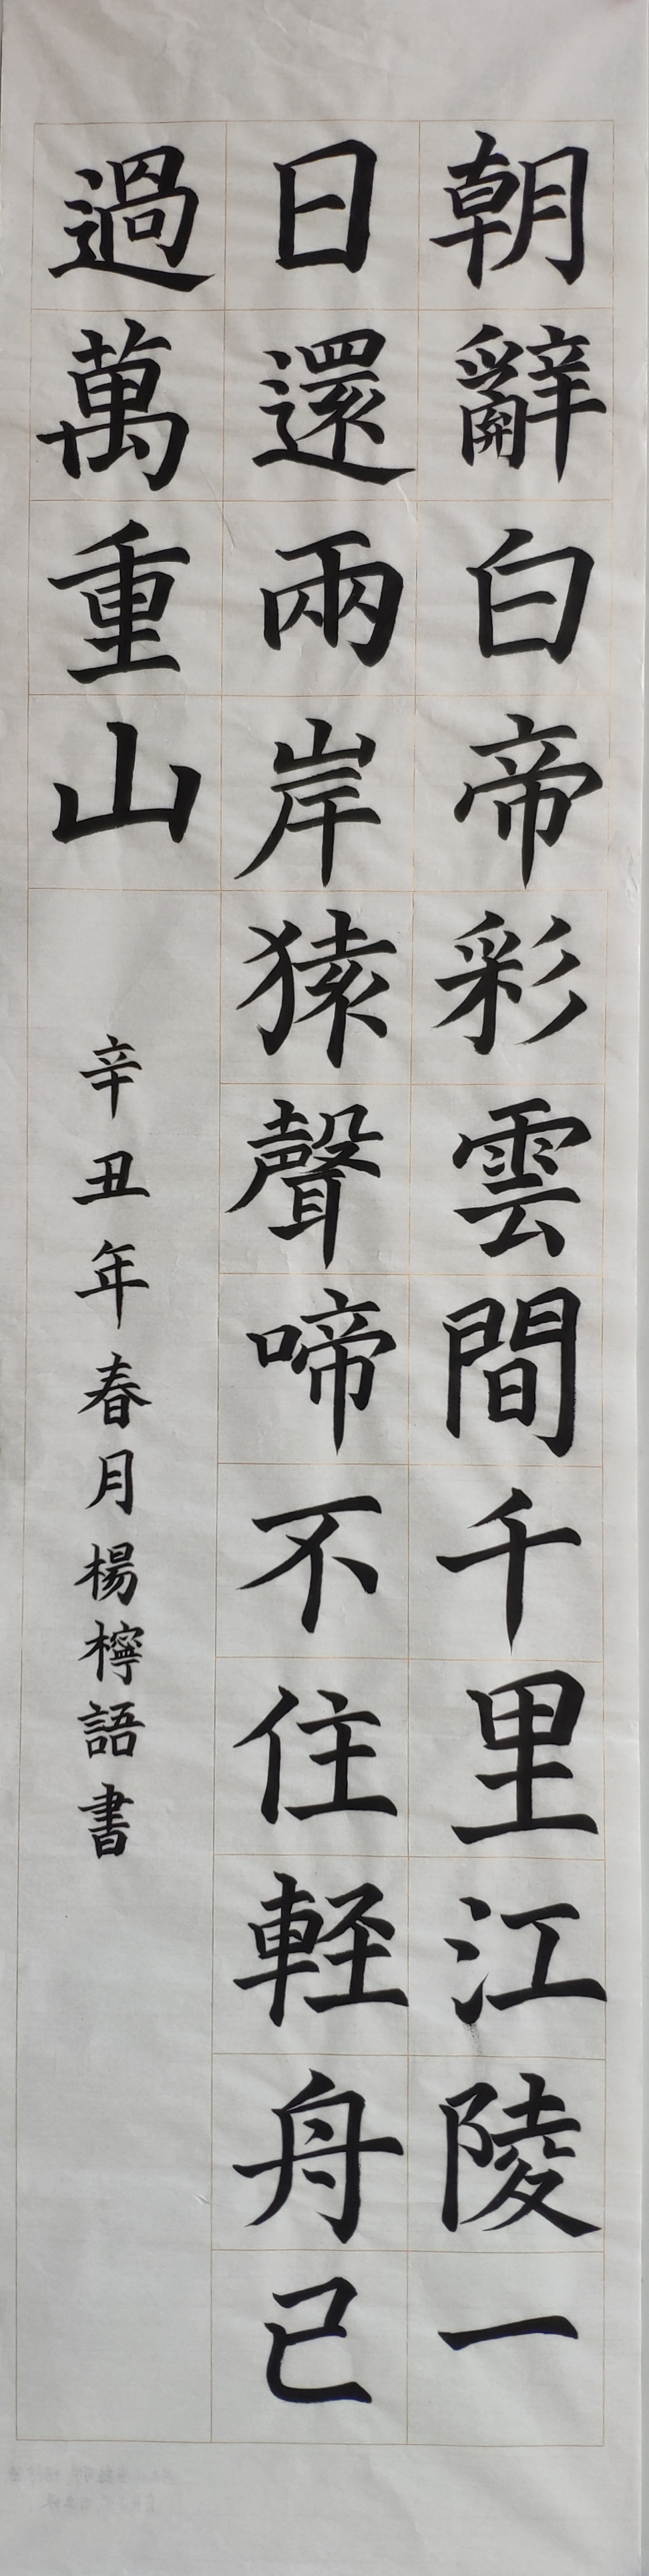 朝辭白帝彩雲間千里江陵一
日還兩岸猿聲啼不住軽舟已
過萬重山
辛丑年春月楊檸語書